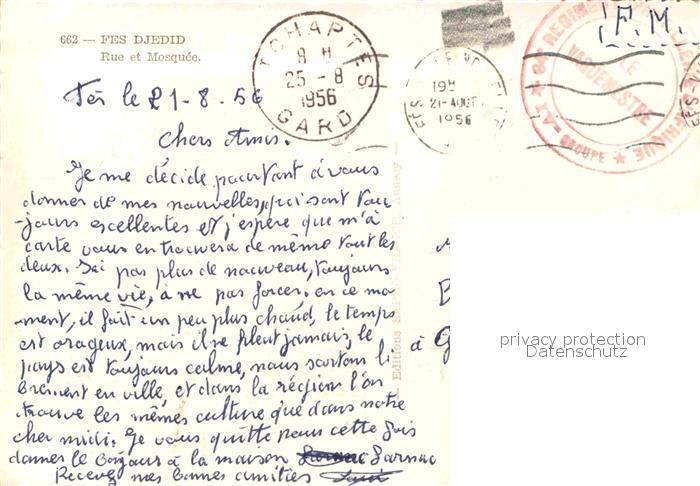 662 — FES DJEDID
Rue et Mosquée.
TCHAPTES
8 H
25 - 8
1956
GARD
19H
21-AOUT
1956
F.M.
VAGUEMESTRE
GROUPE
Fès le 21-8-56
Chers Amis.
Je me décide pourtant à vous
donner de mes nouvelles, qui sont tou
-jours escellentes et j'espère que m'a
carte vous en trouvera de même tout les
deux. J'ai pas plus de nouveau, toujours
la même vie, à ne pas forcer, en ce mo
-ment, il fait un peu plus chaud, le temps
est orageux, mais il ne pleut jamais, le
pays est toujours calme, nous sortons li
brement en ville, et dans la région l'on
trouve les mêmes culture que dans notre
cher midi. Je vous quitte pour cette fois
donner le bonjour à la maison Larnac
Recevez mes bonnes amitiés
à G
privacy protection
Datenschutz